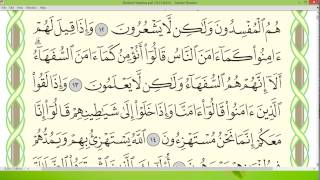 هُمُ ٱلْمُفْسِدُونَ وَلَٰكِن لَّا يَشْعُرُونَ ١٢ وَإِذَا قِيلَ لَهُمْ
ءَامِنُوا۟ كَمَآ ءَامَنَ ٱلنَّاسُ قَالُوٓا۟ أَنُؤْمِنُ كَمَآ ءَامَنَ ٱلسُّفَهَآءُ
أَلَآ إِنَّهُمْ هُمُ ٱلسُّفَهَآءُ وَلَٰكِن لَّا يَعْلَمُونَ ١٣ وَإِذَا لَقُوا۟
ٱلَّذِينَ ءَامَنُوا۟ قَالُوٓا۟ ءَامَنَّا وَإِذَا خَلَوْا۟ إِلَىٰ شَيَٰطِينِهِمْ قَالُوٓا۟ إِنَّا
مَعَكُمْ إِنَّمَا نَحْنُ مُسْتَهْزِءُونَ ١٤ ٱللَّهُ يَسْتَهْزِئُ بِهِمْ وَيَمُدُّهُمْ